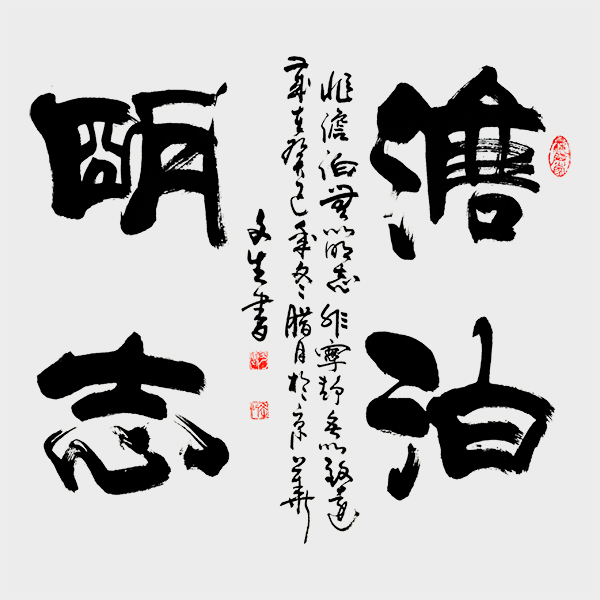 澹泊
朙志
非澹泊無以明志非寧靜無以致遠
歲在癸巳年冬臘月於京華
文生書